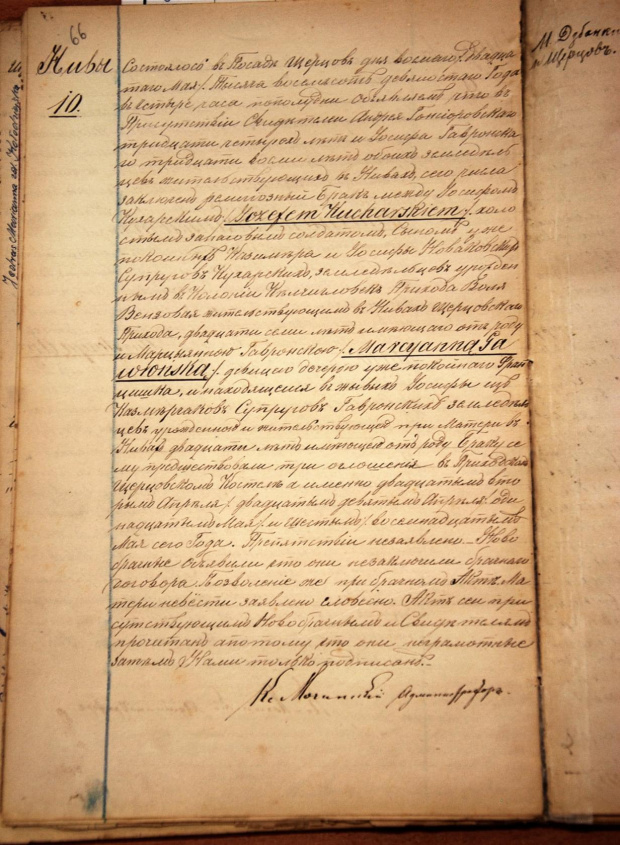 66
Нивы
10.
Состоялось въ Посадѣ Щерцовъ дня восьмаго / двадца
таго Мая / Тысяча восемьсотъ девяностаго Года
въ четыре часа пополудни Объявляемъ что въ
Присутствіи Свидѣтелей Андрея
тридцати четырехъ лѣтъ и Іосифа Гавронска
го тридцати восьми лѣтъ обоихъ земледѣль
цевъ жительствующихъ въ Нивахъ, сего числа
заключенъ религіозный Бракъ между Іосифомъ
Кухарскимъ / Józefem Kucharskiem / холо
стымъ запаснымъ солдатомъ, Сыномъ уже
покойныхъ Казимѣра и Іосифы
Супруговъ Кухарскихъ, земледѣльцевъ урожден
нымъ въ Колоніи Прихода Воля
жительствующимъ въ Нивахъ Щерцовскаго
Прихода, двадцати семи лѣтъ имѣющаго отъ роду
и Марцыянною Гавронскою / Marcyanną Ga
wrońską / девицею дочерью уже покойнаго Фран
цишка, и находящейся въ живыхъ Іосифы изъ
Супруговъ Гавронскихъ земледѣль
цевъ урожденной и жительствующей при Матери въ
Нивахъ двадцати лѣтъ имѣющей отъ роду Браку се
му предшествовали три оглашенія въ Приходскомъ
Щерцовскомъ Костелѣ а именно двадцатымъ вто
рымъ Апрѣля / двадцатымъ девятымъ Апрѣля / оди
надцатымъ Мая / и шестымъ / восемнадцатымъ
Мая сего Года. Препятствій незаявлено. Ново
брачные объявили что они незаключили брачнаго
договора Позволеніе же при брачномъ Актѣ Ма
тери невѣсти заявлено словесно. Актъ сей при
сутствующимъ Новобрачнымъ и Свидѣтелямъ
прочитанъ а потому что они неграмотные
затѣмъ Нами только подписанъ.
Кс Администраторъ.
М.
Щерцовъ.